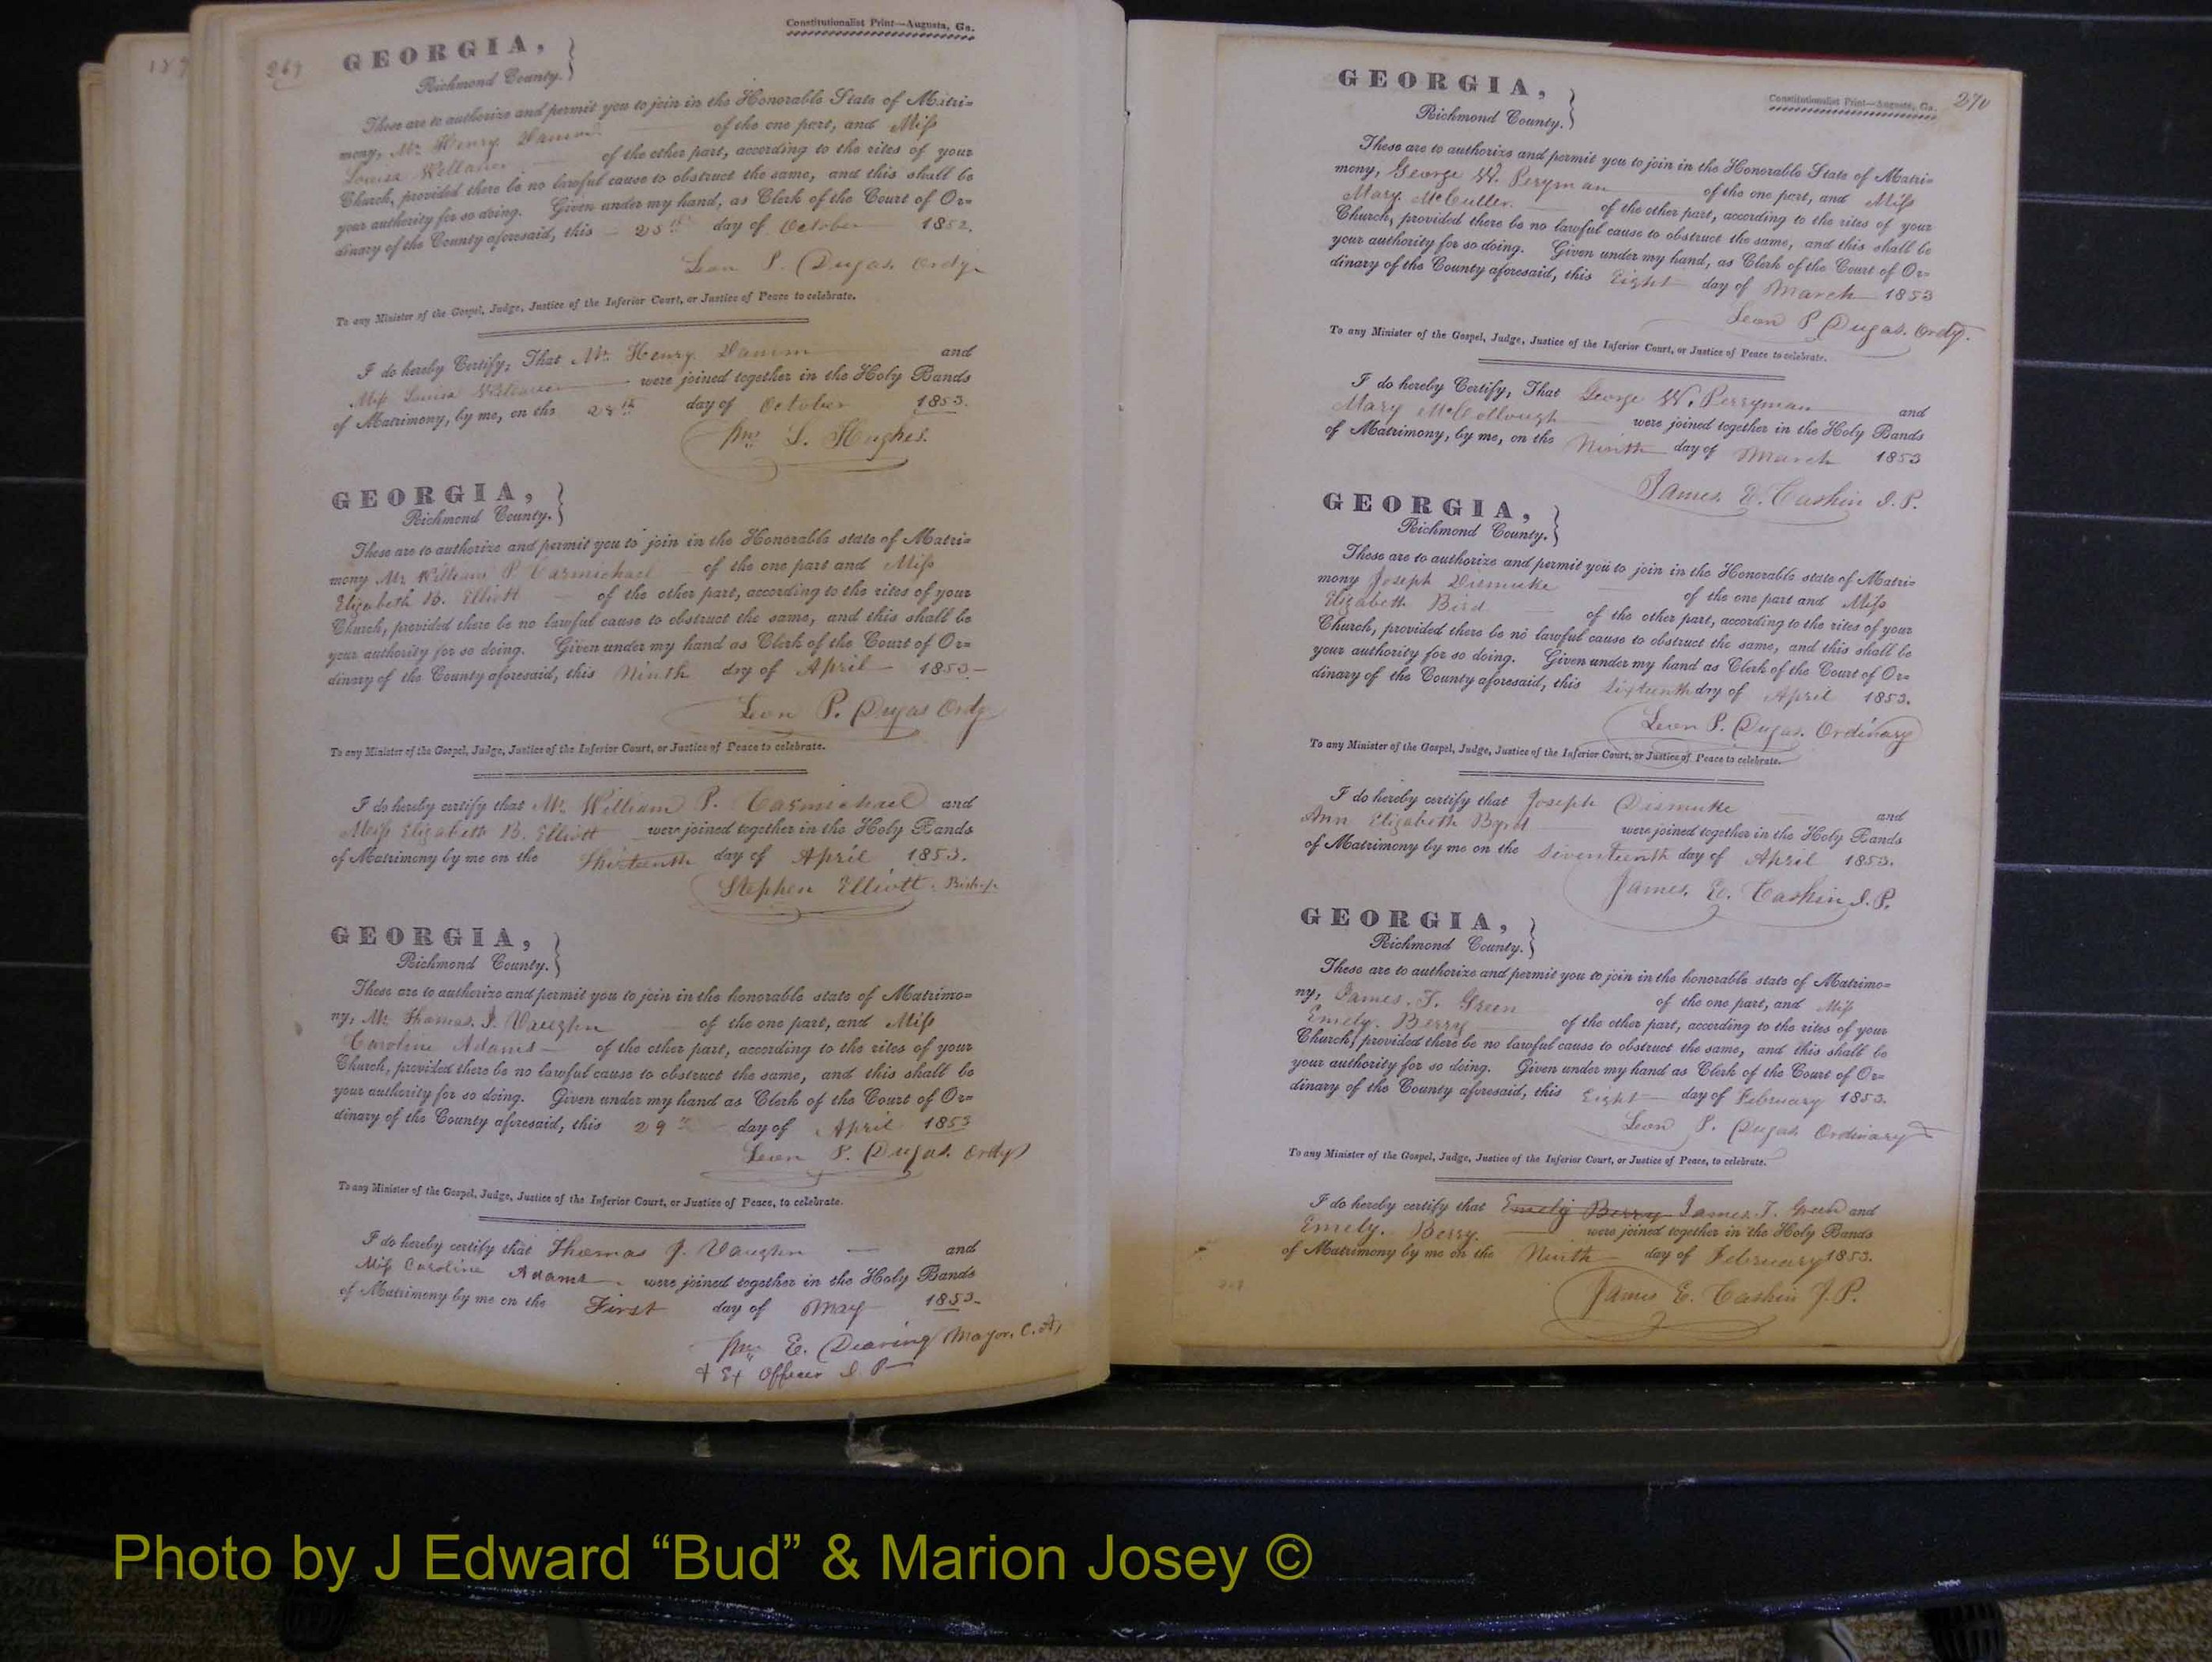 Constitutionalist Print—Augusta, Ga.
269
GEORGIA,
Richmond County.
These are to authorize and permit you to join in the Honorable State of Matri=
mony, Mr Henry Damm of the one part, and Miss
Louisa of the other part, according to the rites of your
Church, provided there be no lawful cause to obstruct the same, and this shall be
your authority for so doing. Given under my hand, as Clerk of the Court of Or=
dinary of the County aforesaid, this 25th day of October 1852.
Leon P. Dugas, Ordy.
To any Minister of the Gospel, Judge, Justice of the Inferior Court, or Justice of Peace to celebrate.
I do hereby Certify, That Mr. Henry Damm and
Miss Louisa were joined together in the Holy Bands
of Matrimony, by me, on the 28th day of October 1853.
Wm. L. Hughes.
GEORGIA,
Richmond County.
These are to authorize and permit you to join in the Honorable state of Matri=
mony Mr William P. Carmichael of the one part and Miss
Elizabeth B. Elliott of the other part, according to the rites of your
Church, provided there be no lawful cause to obstruct the same, and this shall be
your authority for so doing. Given under my hand as Clerk of the Court of Or=
dinary of the County aforesaid, this Ninth day of April 1853—
Leon P. Dugas Ordy
To any Minister of the Gospel, Judge, Justice of the Inferior Court, or Justice of Peace to celebrate.
I do hereby certify that Mr. William P. Carmichael and
Miss Elizabeth B. Elliott were joined together in the Holy Bands
of Matrimony by me on the Thirteenth day of April 1853.
Stephen Elliott. Bishop
GEORGIA,
Richmond County.
These are to authorize and permit you to join in the honorable state of Matrimo=
ny, Mr Thomas. J. Vaughn of the one part, and Miss
Caroline Adams— of the other part, according to the rites of your
Church, provided there be no lawful cause to obstruct the same, and this shall be
your authority for so doing. Given under my hand as Clerk of the Court of Or=
dinary of the County aforesaid, this 29th day of April 1853
Leon P. Dugas. Ordy
To any Minister of the Gospel, Judge, Justice of the Inferior Court, or Justice of Peace, to celebrate.
I do hereby certify that Thomas J. Vaughn — and
Miss Caroline Adams were joined together in the Holy Bands
of Matrimony by me on the First day of May 1853—
Wm. E. Dearing Mayor, C. A,
& Ex Officer J. P—
270
Constitutionalist Print—Augusta, Ga.
GEORGIA,
Richmond County.
These are to authorize and permit you to join in the Honorable State of Matri=
mony, George W. Peryman of the one part, and Miss
Mary McCuller. of the other part, according to the rites of your
Church, provided there be no lawful cause to obstruct the same, and this shall be
your authority for so doing. Given under my hand, as Clerk of the Court of Or=
dinary of the County aforesaid, this Eight day of March 1853
Leon P Dugas. Ordy.
To any Minister of the Gospel, Judge, Justice of the Inferior Court, or Justice of Peace to celebrate.
I do hereby Certify, That George W. Perryman and
Mary McCollough were joined together in the Holy Bands
of Matrimony, by me, on the Ninth day of March 1853
James E. Cashin J. P.
GEORGIA,
Richmond County.
These are to authorize and permit you to join in the Honorable state of Matri=
mony Joseph Dismuke of the one part and Miss
Elizabeth Bird of the other part, according to the rites of your
Church, provided there be no lawful cause to obstruct the same, and this shall be
your authority for so doing. Given under my hand as Clerk of the Court of Or=
dinary of the County aforesaid, this Sixteenth day of April 1853.
Leon P. Dugas. Ordinary
To any Minister of the Gospel, Judge, Justice of the Inferior Court, or Justice of Peace to celebrate.
I do hereby certify that Joseph Dismuke and
Ann Elizabeth Byrd were joined together in the Holy Bands
of Matrimony by me on the Seventeenth day of April 1853.
James. E. Cashin J. P.
GEORGIA,
Richmond County.
These are to authorize and permit you to join in the honorable state of Matrimo=
ny, James. T. Green of the one part, and Miss
Emely. Berry of the other part, according to the rites of your
Church, provided there be no lawful cause to obstruct the same, and this shall be
your authority for so doing. Given under my hand as Clerk of the Court of Or=
dinary of the County aforesaid, this Eight day of February 1853.
Leon P. Dugas Ordinary
To any Minister of the Gospel, Judge, Justice of the Inferior Court, or Justice of Peace, to celebrate.
I do hereby certify that Emely Berry James. T. Green and
Emely. Berry. were joined together in the Holy Bands
of Matrimony by me on the Ninth day of February 1853.
James E. Cashin J. P.
Photo by J Edward “Bud” & Marion Josey ©